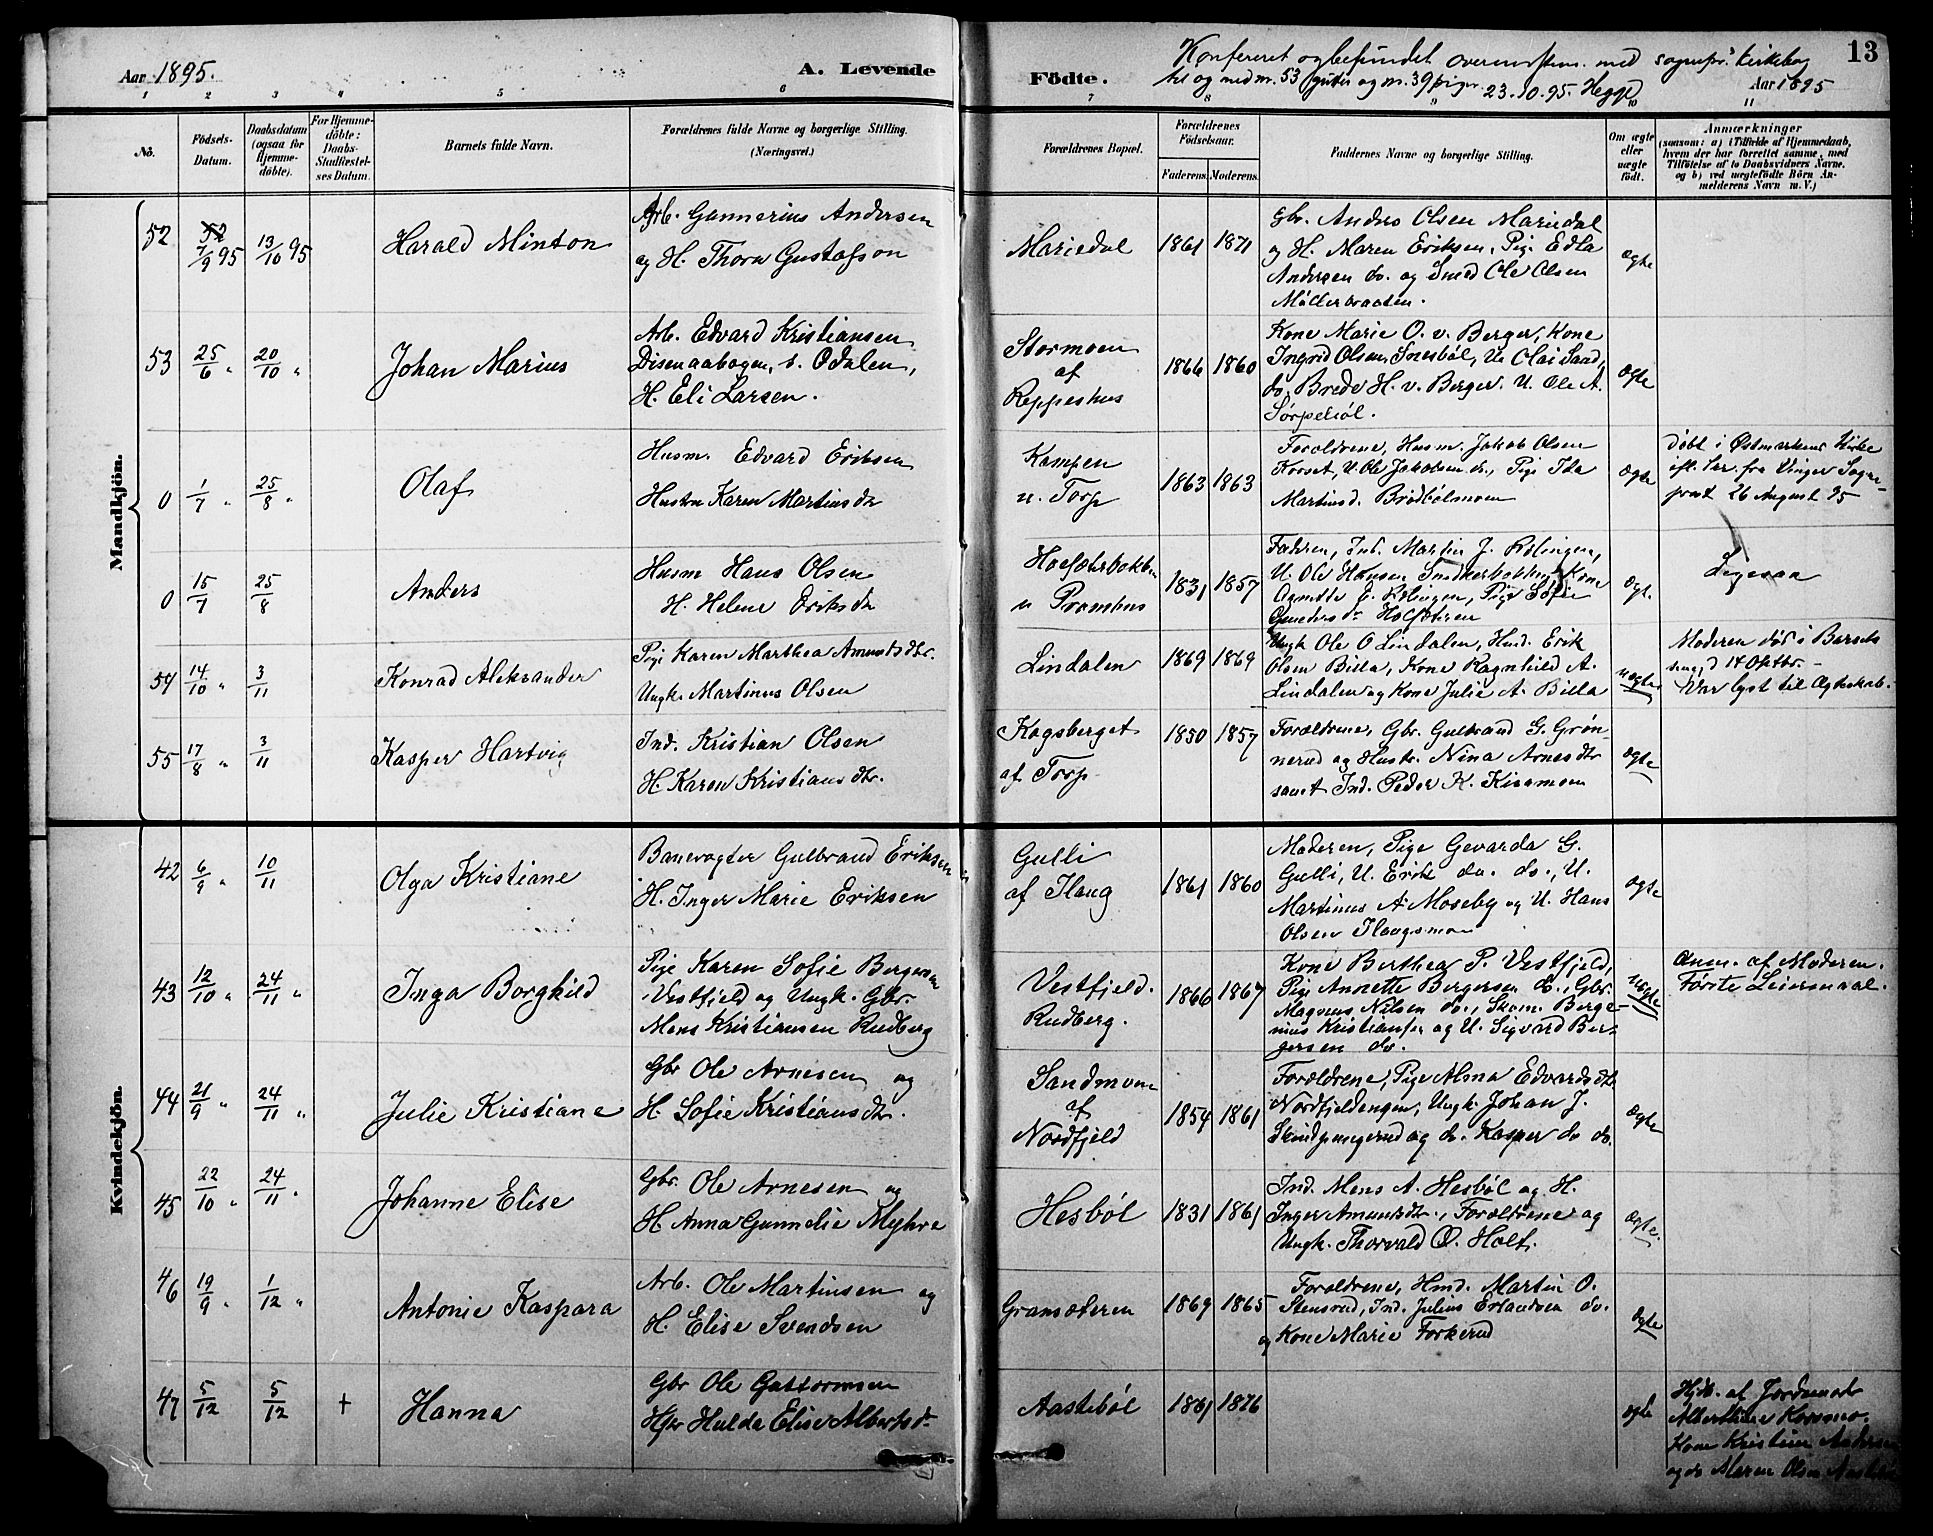 Aar 1895.
A. Levende
Födte.
Konfereret og befundet overensstem. med sognepr. kirkebog
til og med nr. 53 gutter og nr. 39 piger 23.10.95. Hegge
Aar 1895
13
1 2 3 4 5 6 7 8 9 10 11
No.
Födsels-
Datum.
Daabsdatum
(ogsaa for
Hjemme-
döbte).
For Hjemme-
döbte:
Daabs-
Stadfæstel-
ses Datum.
Barnets fulde Navn.
Forældrenes fulde Navne og borgerlige Stilling.
(Næringsvei.)
Forældrenes Bopæl.
Forældrenes
Födselsaar.
Faderens. Moderens.
Faddernes Navne og borgerlige Stilling.
Om ægte
eller
uægte
født.
Anmærkninger
(saasom: a) i Tilfælde af Hjemmedaab,
hvem der har forrettet samme, med
Tilföielse af to Daabsvidners Navne,
og b) ved uægtefödte Börn An-
melderens Navn m. V.)
Mandkjön.
52
7/9 95
13/10 95
Harald Minton
Arb. Gunnerius Andersen
og H. Thora Gustafson
Mariedal
1861 1871
Gbr. Andres Olsen Mariedal
og H. Maren Eriksen, Pige Edla
Andersen do. og Smed Ole Olsen
Möllerbraaten.
ægte
53
25/6 "
20/10 "
Johan Marius
Arb. Edvard Kristiansen
Disenaabogen, s. Odalen,
H. Eli Larsen.
Stormoen
af
Reppeshus
1866 1860
Kone Marie O. v. Berger, Kone
Ingrid Olsen, Snesböl, U. Olai Sand,
do, Brede H. v. Berger. U. Ole A.
ægte
0
1/7 "
25/8 "
Olaf
Husm. Edvard Eriksen
Hustru Karen Martinsdtr
Kampen
u. Torp
1863 1863
Forældrene, Husm. Jakob Olsen
Korset, U. Ole Jakobsen do., Pige Ida
Martinsd. Brödbölmoen
ægte
Döbt i Østmarkens Kirke
ifl. Skr. fra Vinger Sogne-
prest 26 August 95
0
15/7
25/8
Anders
Husm Hans Olsen
H. Helene Eriksdtr
u Pramhus
1831 1857
Faderen, Ind. Martin J. Rölingen,
U. Ole Hansen Snedkerbakken, Kone
ægt.
Ligesaa
54
14/10 "
3/11
Konrad Aleksander
Pige Karen Marthea Amundsdtr.
Ungk. Martinus Olsen
Lindalen
1869 1869
Ungk Ole O Lindalen, Husm. Erik
Olsen Billa, Kone Ragnhild A.
Lindalen og Kone Julie A. Billa
uægte
Moderen död i Barsel-
seng d 14 Oktbr. –
Var lyst til Ægteskab. –
55
17/8 "
3/11
Kasper Hartvig
Ind. Kristian Olsen
H. Karen Kristiansdtr.
Kagsberget
af Torp
1850 1857
Forældrene, Gbr. Gulbrand G. Grön-
nerud og Hustr. Nina Arnesdtr
samt Ind. Peder K. Kisamoen
ægte
Kvindekjön.
42
6/9 "
10/11
Olga Kristiane
Banevogter Gulbrand Eriksen
H. Inger Marie Eriksen
Gulli
af Haug
1861 1860
Moderen, Pige Gevarda G.
Gulli, U. Erik do. do., U.
Martinus A. Moseby og U. Hans
Olsen Haugsmoen
ægte
43
12/10 "
24/11 "
Inga Borghild
Pige Karen Sofie Bergersen
Vestfjeld og Ungk. Gbr.
Mons Kristiansen Rudberg
Vestfjeld.
Rudberg.
1866 1867
Kone Berthea P. Vestfjeld,
Pige Annette Bergersen do., Gbr.
Magnus Nilsen do., Skom. Berge-
nius Kristiansen og U. Sigvard Ber-
gersen do.
uægte
Anm. af Moderen.
Förste Leiersmaal.
44
21/9 "
24/11 "
Julie Kristiane
Gbr Ole Arnesen og
H. Sofie Kristiansdtr.
Sandmoen
af
Nordfjeld
1854 1861
Forældrene, Pige Alma Edvardsdtr
Nordfjeldengen, Ungk. Johan J.
Skindpungerud og do. Kasper do do.
ægte
45
22/10 "
24/11 "
Johanne Elise
Gbr. Ole Arnesen og
H. Anna Gunnelie Myhre
Hesböl
1831 1861
Ind. Mons A. Hesböl og H.
Inger Amundsdtr., Forældrene og
Ungk. Thorvald O. Holt.
ægte.
46
19/9 "
1/12 "
Antonie Kaspara
Arb. Ole Martinsen og
H. Elise Svendsen
Gransæteren
1869 1865
Forældrene, Hmd. Martin O.
Stensrud, Ind. Julius Erlandsen do.
og Kone Marie Torkerud
ægte
47
5/12
5/12
+
Hanna
Gbr Ole Guttormsen
Hfr Hulda Elise Albertsdr
Aasteböl
1861 1876
ægte
Hjdb. af Jordemoder
Albertine Korsmo.
Kone Kristine Andersen
og do Maren Olsen Aasteböl